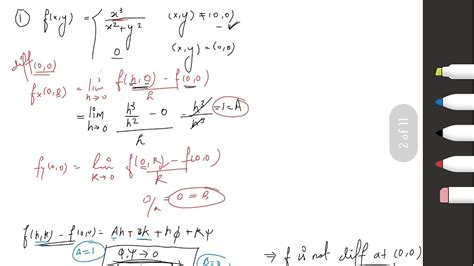 ① f(x,y) = { x³/(x²+y²) (x,y) ≠ (0,0)
0 (x,y) = (0,0)
diff (0,0)
fx(0,0) = lim h→0 f(h,0) - f(0,0) / h
= lim h→0 (h³/h² - 0)/h = h³/h³ = 1 = A
fy(0,0) = lim k→0 f(0,k) - f(0,0) / k
0/k = 0 = B
f(h,k) - f(0,0) = Ah + Bk + hϕ + kψ
A=1 ϕ,ψ → 0
⇒ f is not diff at (0,0)
2 of 11